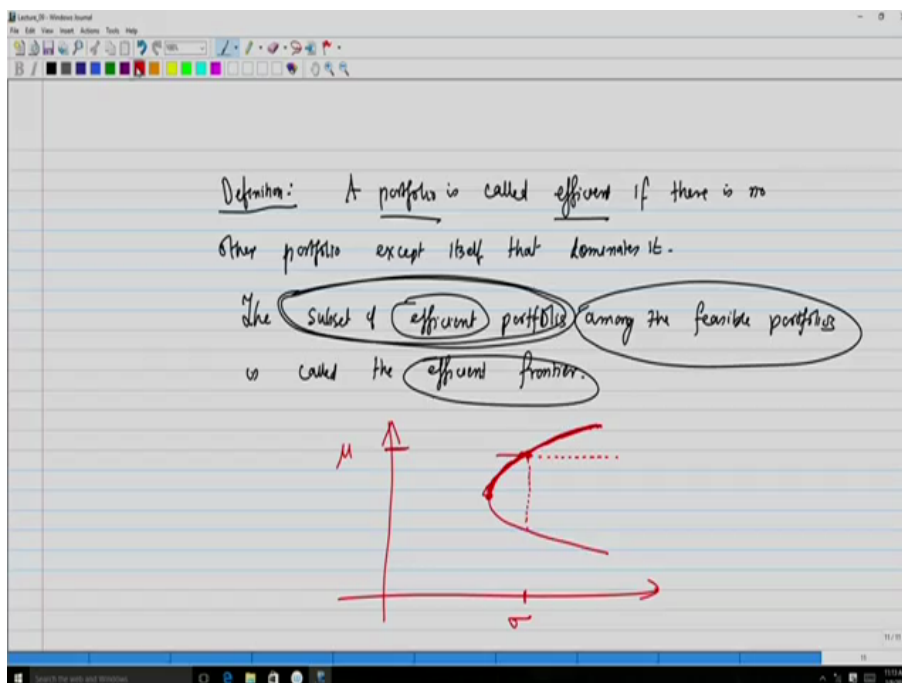 Lecture_09 - Windows Journal
File Edit View Insert Actions Tools Help
B I
Definition: A portfolio is called efficient if there is no
other portfolio except itself that dominates it.
The subset of efficient portfolios among the feasible portfolios
is called the efficient frontier.
μ
σ
11 / 11
15
Search the web and Windows